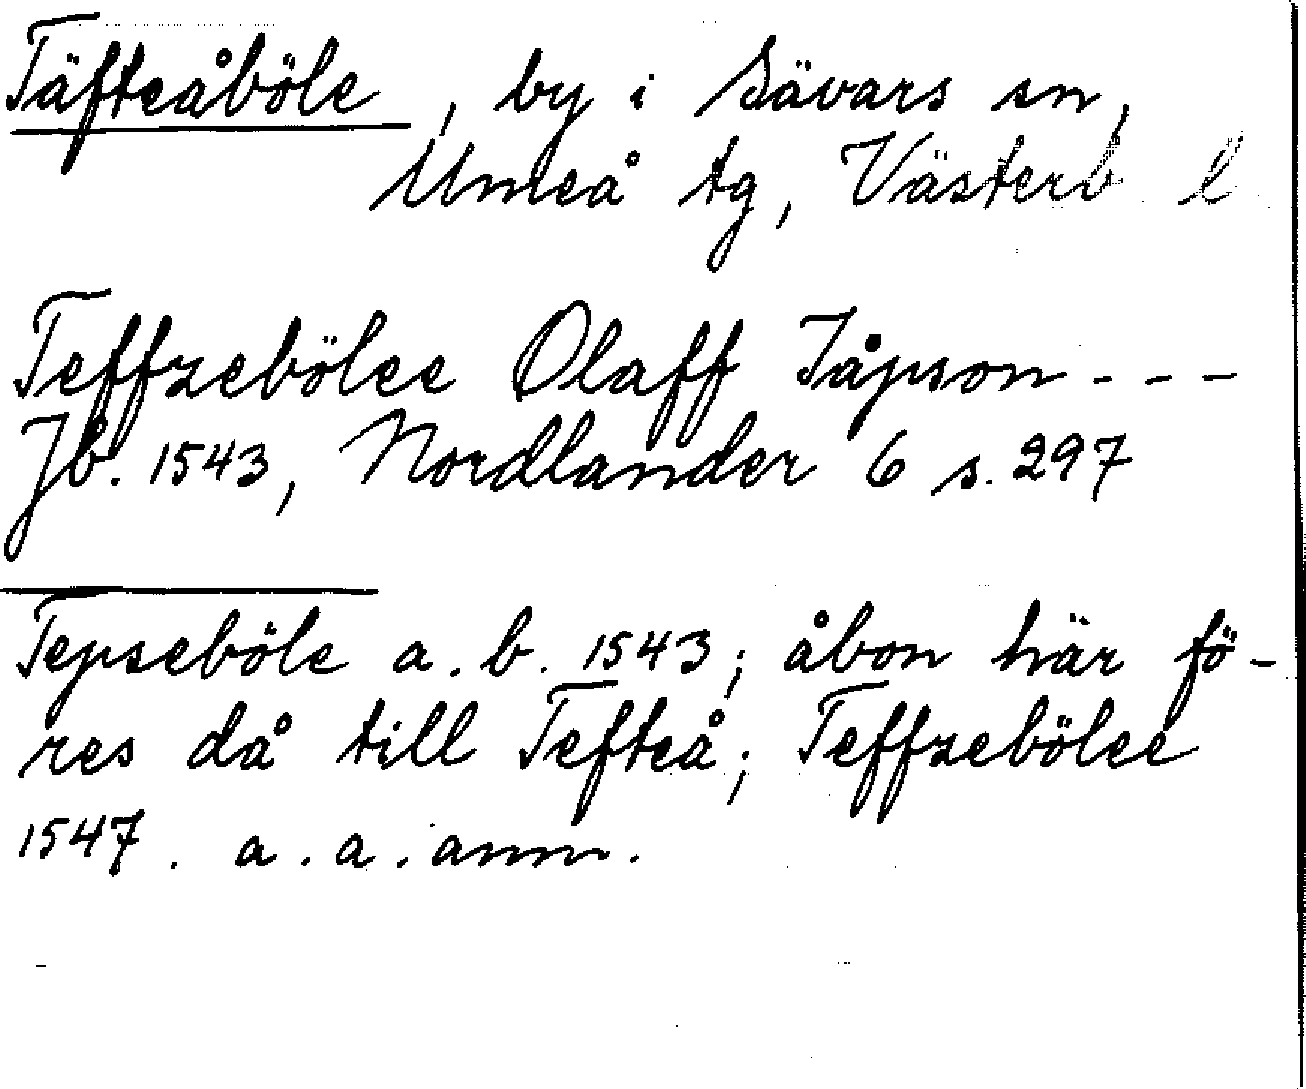 Täfteåböle, by i Sävars sn,
Umeå tg, Västerb l
Teffzebölee Olaff Jåpson - - -
Jb. 1543, Nordlander 6 s. 297
Tepseböle a. b. 1543; åbon här fö-
res då till Tefteå; Teffzebölee
1547. a. a. anm.